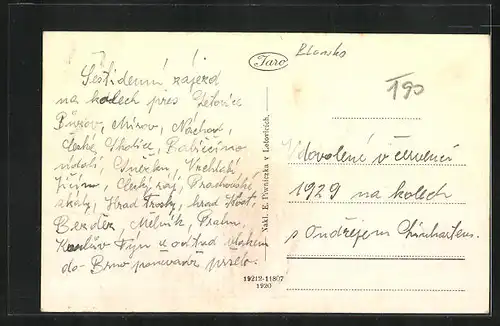 Šestidenní zájezd
na kolech přes Letovice
Bůzov, Mírov, Náchod,
České Skalice, Babiččino
údolí, Sněžku, Vrchlabí
Jičín, Český ráj, Prachovské
skály, Hrad Trosky, hrad Kost
Bezděz, Mělník, Prahu,
Karlův Týn a odtud vlakem
do Brna poněvadž pršelo.
Faro
Nakl. E. Pivnička v Letovicích.
19212-11807
1920
Blansko
190
Vdovolené v červenci
1929 na kolech
s Ondřejem